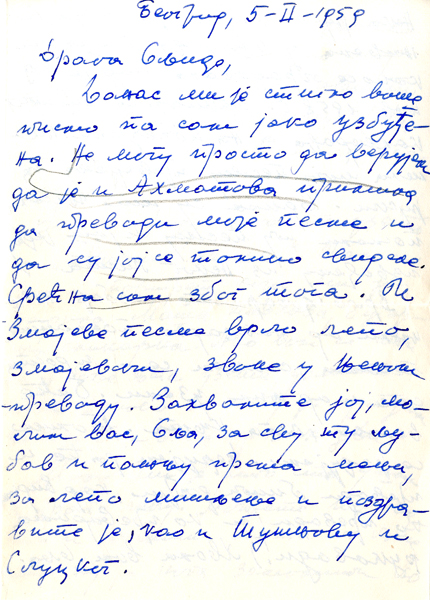 Београд, 5-II-1959
Драга Оља,
Данас ми је стигло ваше
писмо па сам јако узбуђе-
на. Не могу просто да верујем
да је и Ахматова пристала
да преводи моје песме и
да су јој се толико свиделе.
Срећна сам због тога. И
Змајеве песме врло лепо,
змајевски, звоне у њеном
преводу. Захвалите јој, мо-
лим вас, Оља, за сву ту љу-
бав и пажњу према мени,
за лепо мишљење и поздра-
вите је, као и Тушњову и
Слуцког.